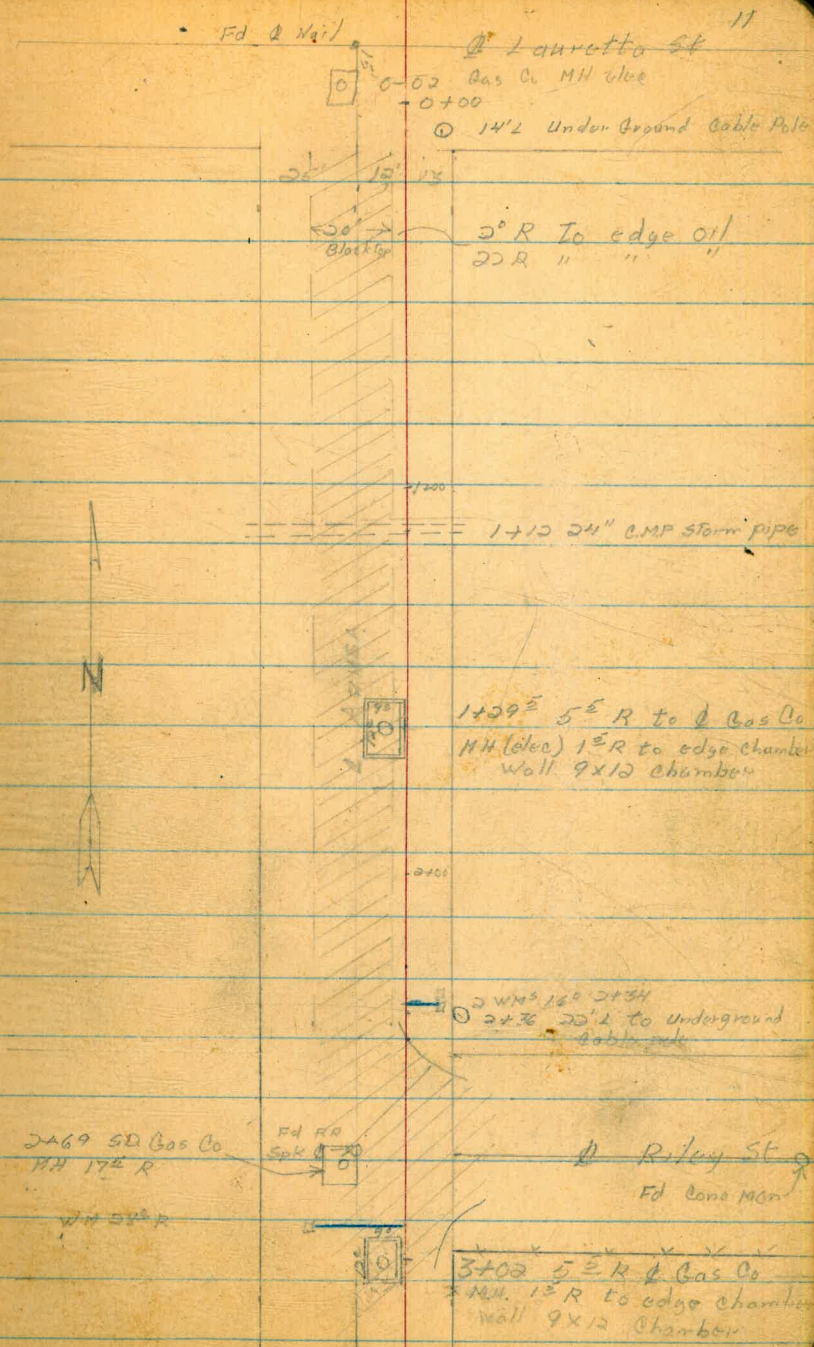 11
Fd ₵ Nail
₵ Lauretta St
15'
0-02 Gas Co MH elec
0+00
14'L Under Ground Cable Pole
25' 12' 13
20'
Blacktop
2⁰ R To edge Oil
22 R " " "
1+00
1+12 24" C.M.P Storm pipe
N
9⁰
12⁰
1+29⁵ 5⁵ R to ₵ Gas Co
MH (elec) 1⁵ R to edge chamber
Wall 9x12 chamber
2+00
2 WMs 16⁰ 2+34
2+36 22'L to underground
Cable pole
2+69 SD Gas Co
MH 17⁵ R
Fd RR
Spk
₵ Riley St
Fd Conc Mon
WM 28⁰ R
9⁰
12⁰
3+02 5⁵ R ₵ Gas Co
M.H. 1⁵ R to edge chamber
Wall 9x12 Chamber